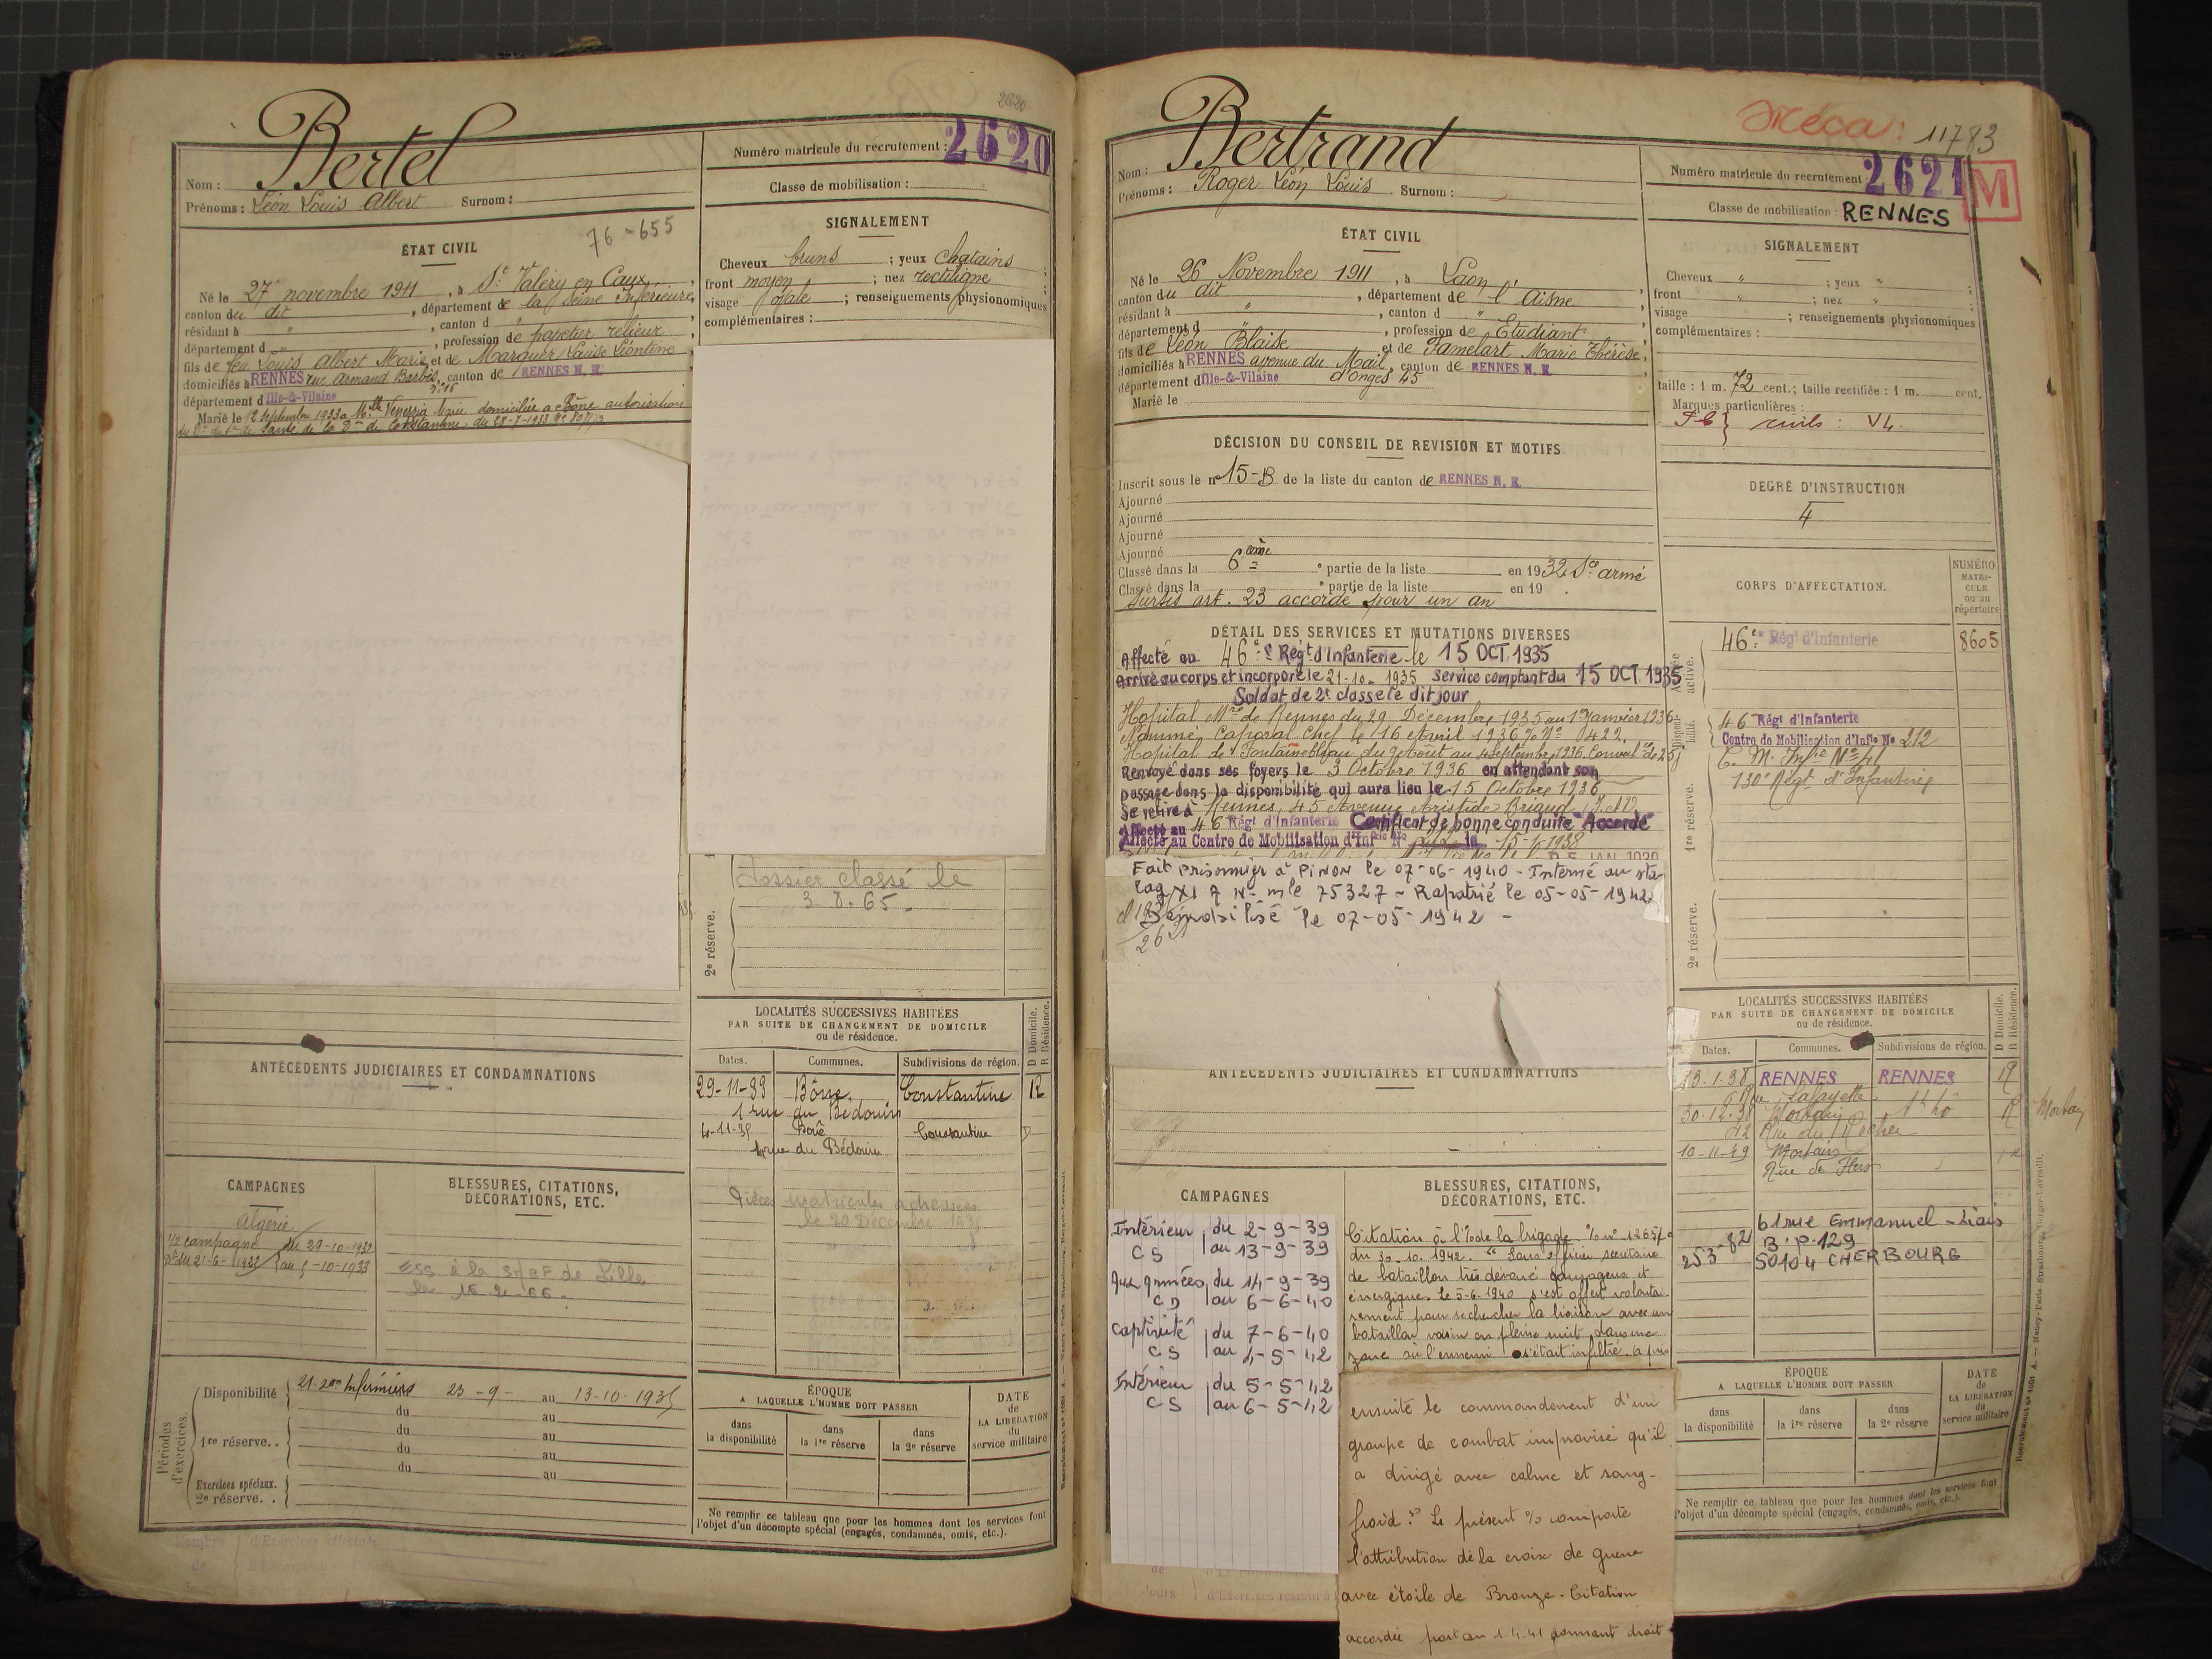 2620
Bertel
Nom :
Prénoms : Léon Louis Albert Surnom :
Numéro matricule du recrutement : 2620
Classe de mobilisation :
76-655
ÉTAT CIVIL
Né le 27 novembre 1911, à St Valéry en Caux,
canton du dit, département de la Seine Inférieure,
résidant à " , canton d " ,
département d " , profession de papetier relieur,
fils de feu Louis Albert Marie et de Marquer Louise Léontine,
domiciliés à RENNES rue Armand Barbès, canton de RENNES N. E.
n° 16
département d'Ille-&-Vilaine
Marié le 12 Septembre 1933 à Mlle Venezzia Marie domiciliée à Bône autorisation
du 28-7-1933
SIGNALEMENT
Cheveux bruns ; yeux chatains ;
front moyen ; nez rectiligne ;
visage ovale ; renseignements physionomiques
complémentaires :
2e réserve.
Dossier classé le
3.8.65.
LOCALITÉS SUCCESSIVES HABITÉES
PAR SUITE DE CHANGEMENT DE DOMICILE
ou de résidence.
D Domicile.
R Résidence.
Dates. Communes. Subdivisions de région.
29-11-33 Bône Constantine R
1 rue du Bédouin
4-11-35 Bône Constantine D
1 rue du Bédouin
Pièces matricules adressées
le 20 Décembre 193
ANTÉCÉDENTS JUDICIAIRES ET CONDAMNATIONS
CAMPAGNES
Algérie
1/2 campagne du 29-10-1932
du 21-6-1932 au 5-10-1933
BLESSURES, CITATIONS,
DÉCORATIONS, ETC.
ESS à la de Lille
le 16 2-66.
Périodes d'exercices.
Disponibilité 21. Son Infirmiers 23-9- au 13-10-1935
du au
1re réserve.. du au
du au
du au
Exercices spéciaux.
2e réserve. .
ÉPOQUE
A LAQUELLE L'HOMME DOIT PASSER
dans la disponibilité
dans la 1re réserve
dans la 2e réserve
DATE
de
LA LIBÉRATION
du
service militaire
Ne remplir ce tableau que pour les hommes dont les services font
l'objet d'un décompte spécial (engagés, condamnés, omis, etc.).
Bertrand
Méca : 11783
Nom :
Prénoms : Roger Léon Louis Surnom :
Numéro matricule du recrutement 2621
M
Classe de mobilisation : RENNES
ÉTAT CIVIL
Né le 26 Novembre 1911, à Laon,
canton du dit, département de l'Aisne,
résidant à " , canton d " ,
département d " , profession de Etudiant
fils de Léon Blaise et de Famelart Marie Thérèse,
domiciliés à RENNES avenue du Mail, canton de RENNES N. E.
département d'Ille-&-Vilaine d'Onges 45
Marié le
SIGNALEMENT
Cheveux " ; yeux " ;
front " ; nez " ;
visage ; renseignements physionomiques
complémentaires :
taille : 1 m. 72 cent.; taille rectifiée : 1 m. cent.
Marques particulières :
civils : V4.
DÉCISION DU CONSEIL DE REVISION ET MOTIFS
Inscrit sous le n° 15-B de la liste du canton de RENNES N. E.
Ajourné
Ajourné
Ajourné
Ajourné
Classé dans la 6ème partie de la liste en 1932. Sce armé
Classé dans la e partie de la liste en 19 .
Sursis art. 23 accordé pour un an
DEGRÉ D'INSTRUCTION
4
CORPS D'AFFECTATION.
NUMÉRO
MATRI-
CULE
ou au
répertoire
DÉTAIL DES SERVICES ET MUTATIONS DIVERSES
Affecté au 46e Régt d'Infanterie le 15 OCT. 1935
Arrivé au corps et incorporé le 21-10-1935 Service comptant du 15 OCT. 1935
Soldat de 2e classe le dit jour
Hopital Mre de Rennes du 29 Décembre 1935 au 1er Janvier 1936
Nommé Caporal Chef le 16 Avril 1936 % No 422.
Hopital de Fontainebleau du 9 Août au 4 Septembre 1936. Conval ce de 25 j
Renvoyé dans ses foyers le 3 Octobre 1936 en attendant son
passage dans la disponibilité qui aura lieu le 15 Octobre 1936
Se retire à Rennes, 45 Avenue Aristide Briand, I. et V.
Affecté au 46 Régt d'Infanterie Certificat de bonne conduite "Accordé"
Affecté au Centre de Mobilisation d'Infie No 212 le 15-4-1938
Fait Prisonnier à PINON le 07-06-1940 - Interné au sta-
lag XI A N- mle 75327 - Rapatrié le 05-05-1942
Démobilisé le 07-05-1942 -
26
Armée active.
46e Régt d'Infanterie 8605
Disponibilité.
46 Régt d'Infanterie
Centre de Mobilisation d'Infie No 212
C. M. Infie No 41
130e Régt d'Infanterie
1re réserve.
2e réserve.
ANTÉCÉDENTS JUDICIAIRES ET CONDAMNATIONS
LOCALITÉS SUCCESSIVES HABITÉES
PAR SUITE DE CHANGEMENT DE DOMICILE
ou de résidence.
D Domicile.
R Résidence.
Dates. Communes. Subdivisions de région.
13.1.38 RENNES RENNES R
6 Rue Lafayette
30.12.38 Mortain St Lô R Mortain
42 Rue du Rocher
10-11-49 Mortain
Rue de Flers
61 rue Emmanuel-Liais
25-3-82 B.P. 129
50104 CHERBOURG
CAMPAGNES
Intérieur du 2-9-39
CS au 13-9-39
Aux Armées du 14-9-39
CD au 6-6-40
Captivité du 7-6-40
CS au 4-5-42
Intérieur du 5-5-42
CS au 6-5-42
BLESSURES, CITATIONS,
DÉCORATIONS, ETC.
Citation à l'O de la brigade % n° 1265
du 30.10.1942. " Sous officier secrétaire
de bataillon très dévoué courageux et
énergique. Le 5-6-1940 s'est offert volontai-
rement pour rechercher la liaison avec un
bataillon voisin en pleine nuit dans une
zone où l'ennemi s'était infiltré. a pris
ensuite le commandement d'un
groupe de combat improvisé qu'il
a dirigé avec calme et sang-
froid." Le présent % comporte
l'attribution de la croix de guerre
avec étoile de Bronze - Citation
accordée post au 1-4-41 donnant droit
ÉPOQUE
A LAQUELLE L'HOMME DOIT PASSER
dans la disponibilité
dans la 1re réserve
dans la 2e réserve
DATE
de
LA LIBÉRATION
du
service militaire
Ne remplir ce tableau que pour les hommes dont les services font
l'objet d'un décompte spécial (engagés, condamnés, omis, etc.).